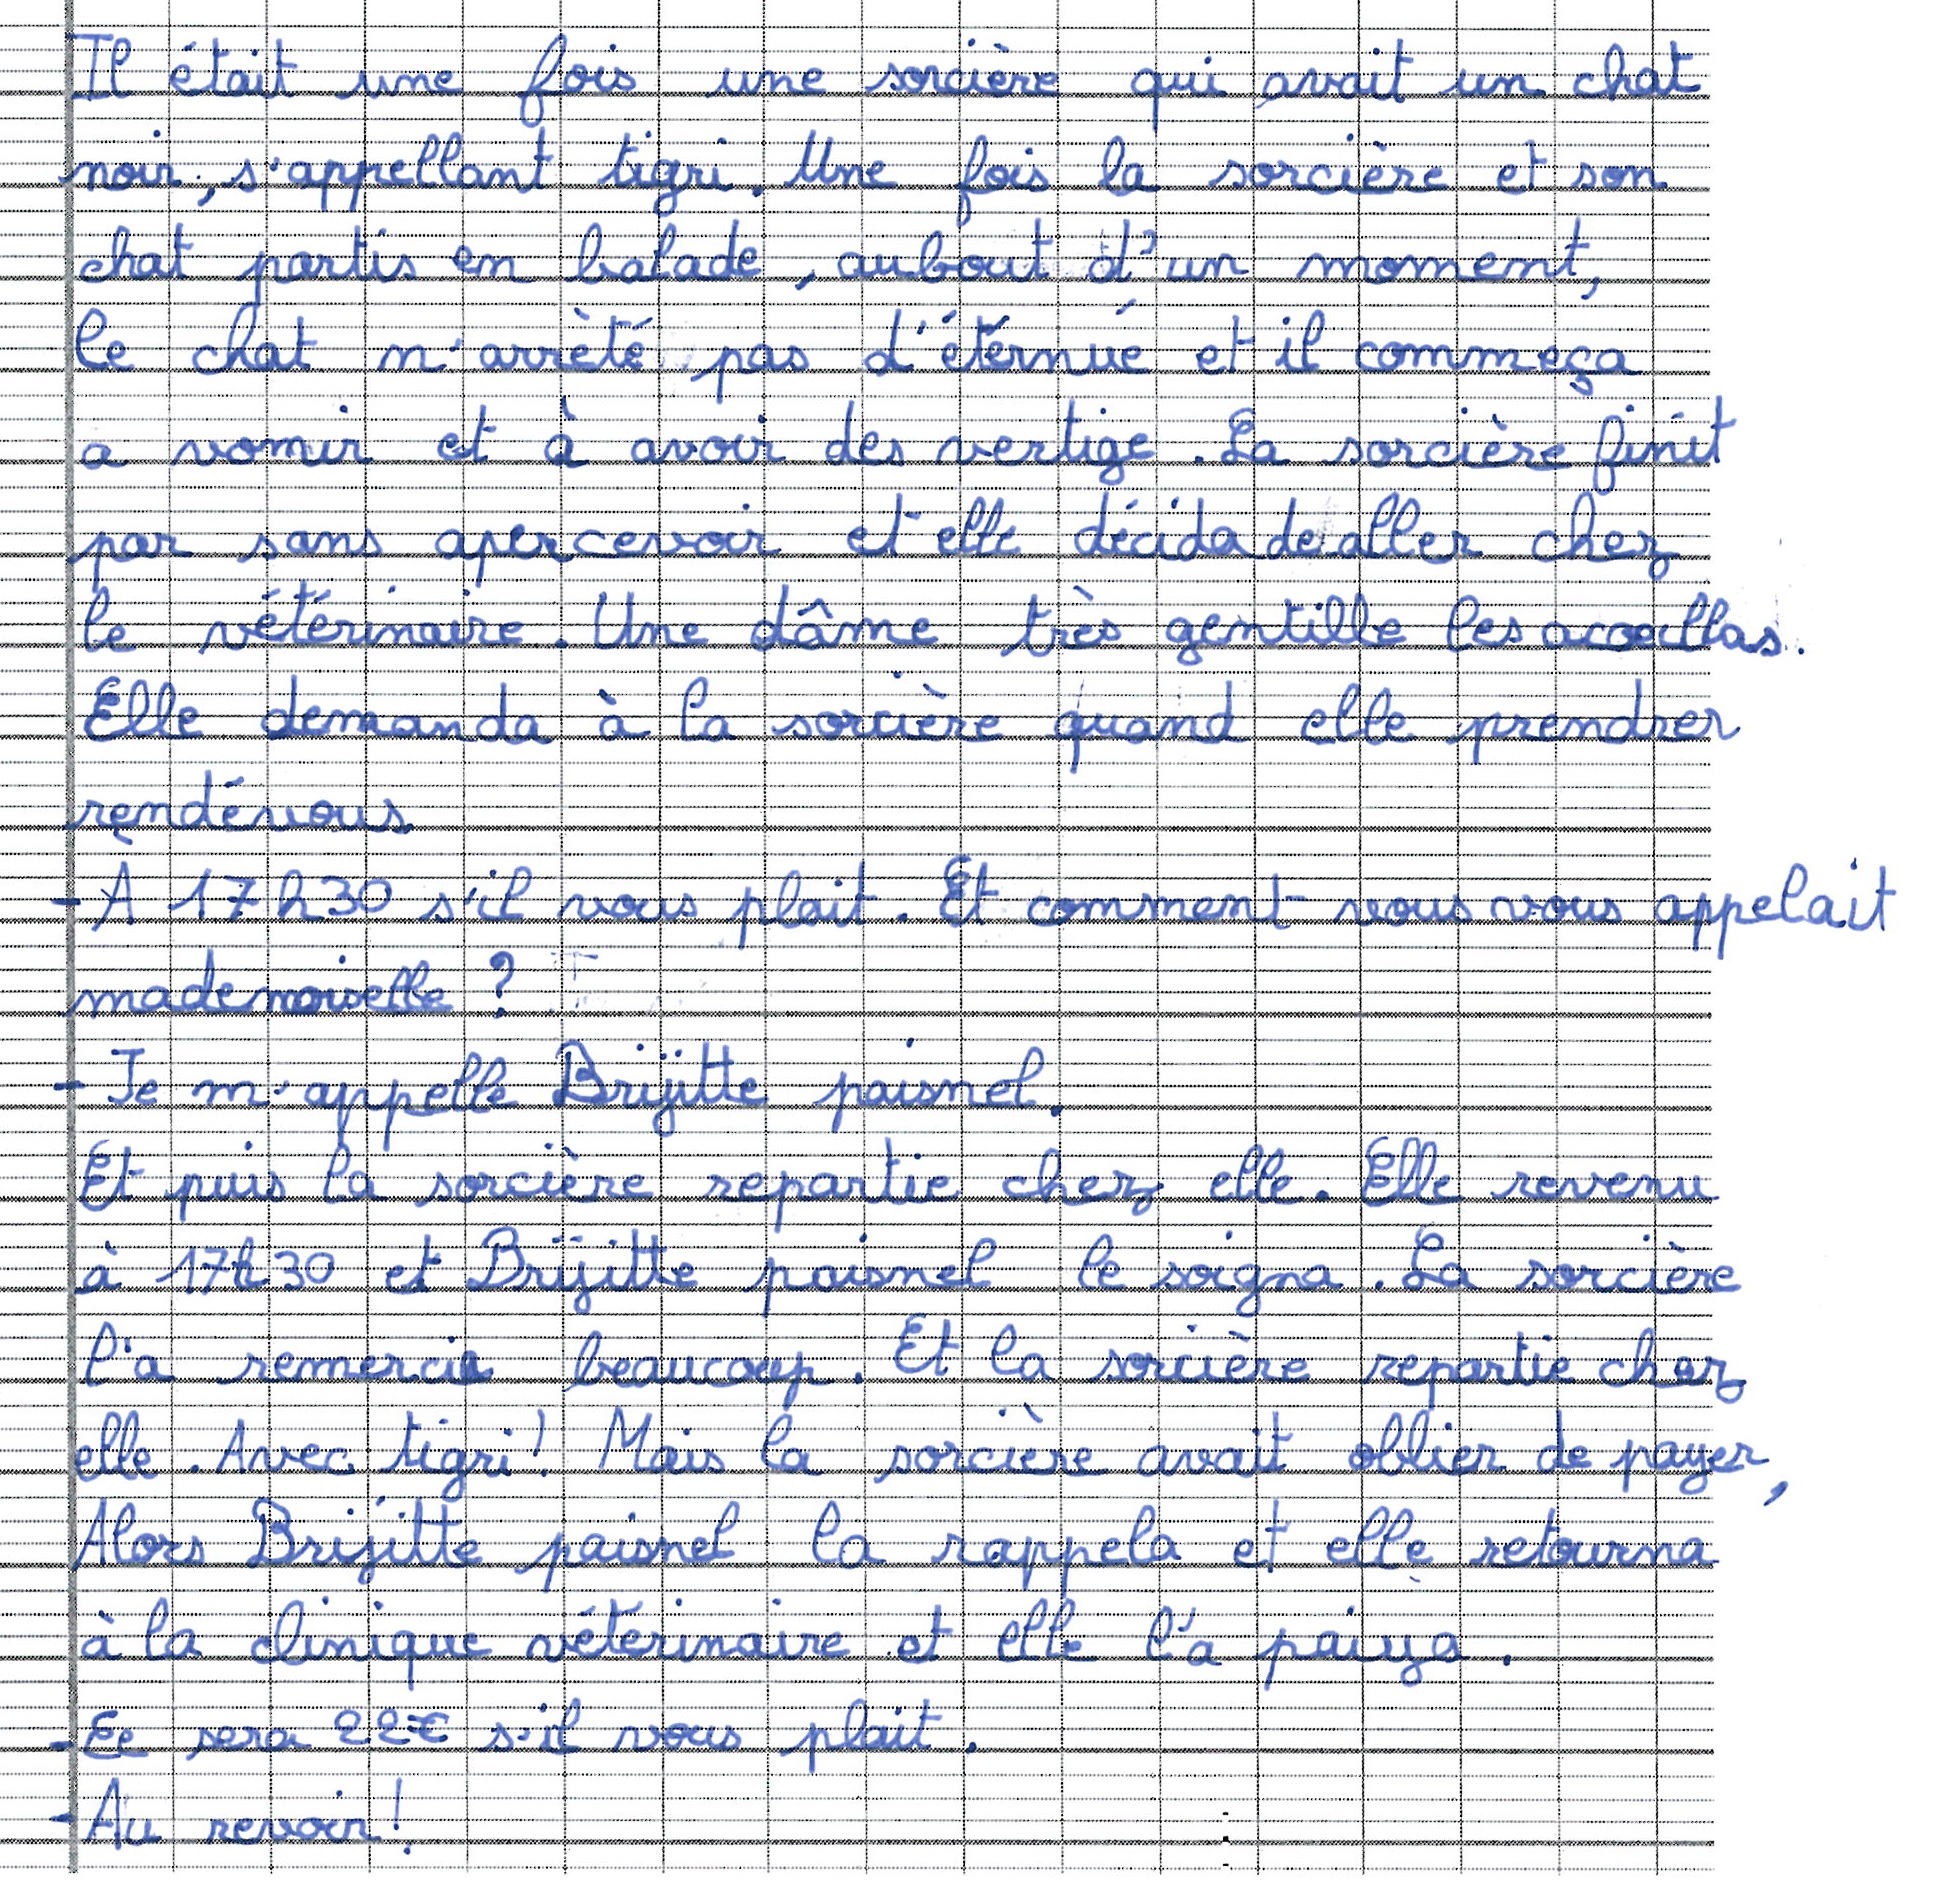 Il était une fois une sorcière qui avait un chat
noir, s'appellant tigri. Une fois la sorcière et son
chat partis en balade, aubout d'un moment,
le chat n'arrèté pas d'éternué et il commeça
a vomir et à avoir des vertige. La sorcière finit
par sans apercevoir et elle décida de aller chez
le vétérinaire. Une dâme très gentille les acoellas.
Elle demanda à la sorcière quand elle prendrer
rendévous
- À 17h30 s'il vous plait. Et comment vous vous appelait
mademoiselle ?
- Je m'appelle Brijitte paisnel.
Et puis la sorcière repartie chez elle. Elle revenu
à 17h30 et Brijitte paisnel le soigna. La sorcière
l'a remercia beaucoup. Et la sorcière repartie chez
elle. Avec tigri! Mais la sorcière avait oblier de payer,
Alors Brijitte paisnel la rappela et elle retourna
à la clinique véterinaire et elle l'a paiya.
- Ce sera 22€ s'il vous plait.
- Au revoir!